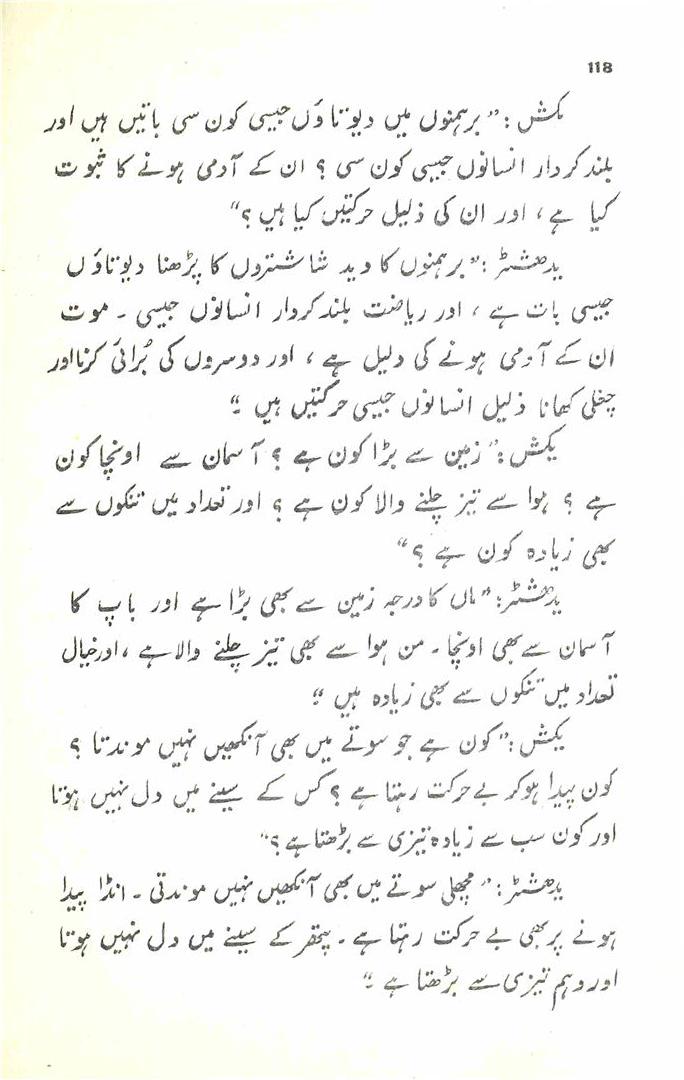 118
یکش : ”برہمنوں میں دیوتاؤں جیسی کون سی باتیں ہیں اور
بلند کردار انسانوں جیسی کون سی ؟ ان کے آدمی ہونے کا ثبوت
کیا ہے ، اور ان کی ذلیل حرکتیں کیا ہیں ؟“
یدھشٹر : ”برہمنوں کا وید شاستروں کا پڑھنا دیوتاؤں
جیسی بات ہے ، اور ریاضت بلند کردار انسانوں جیسی ۔ موت
ان کے آدمی ہونے کی دلیل ہے ، اور دوسروں کی بُرائی کرنا اور
چغلی کھانا ذلیل انسانوں جیسی حرکتیں ہیں ۔“
یکش : ”زمین سے بڑا کون ہے ؟ آسمان سے اونچا کون
ہے ؟ ہوا سے تیز چلنے والا کون ہے ؟ اور تعداد میں تنکوں سے
بھی زیادہ کون ہے ؟“
یدھشٹر : ”ماں کا درجہ زمین سے بھی بڑا ہے اور باپ کا
آسمان سے بھی اونچا ۔ من ہوا سے بھی تیز چلنے والا ہے ، اور خیال
تعداد میں تنکوں سے بھی زیادہ ہیں ۔“
یکش : ”کون ہے جو سوتے میں بھی آنکھیں نہیں موندتا ؟
کون پیدا ہو کر بے حرکت رہتا ہے ؟ کس کے سینے میں دل نہیں ہوتا
اور کون سب سے زیادہ تیزی سے بڑھتا ہے ؟“
یدھشٹر : ”مچھلی سوتے میں بھی آنکھیں نہیں موندتی ۔ انڈا پیدا
ہونے پر بھی بے حرکت رہتا ہے ۔ پتھر کے سینے میں دل نہیں ہوتا
اور وہم تیزی سے بڑھتا ہے ۔“